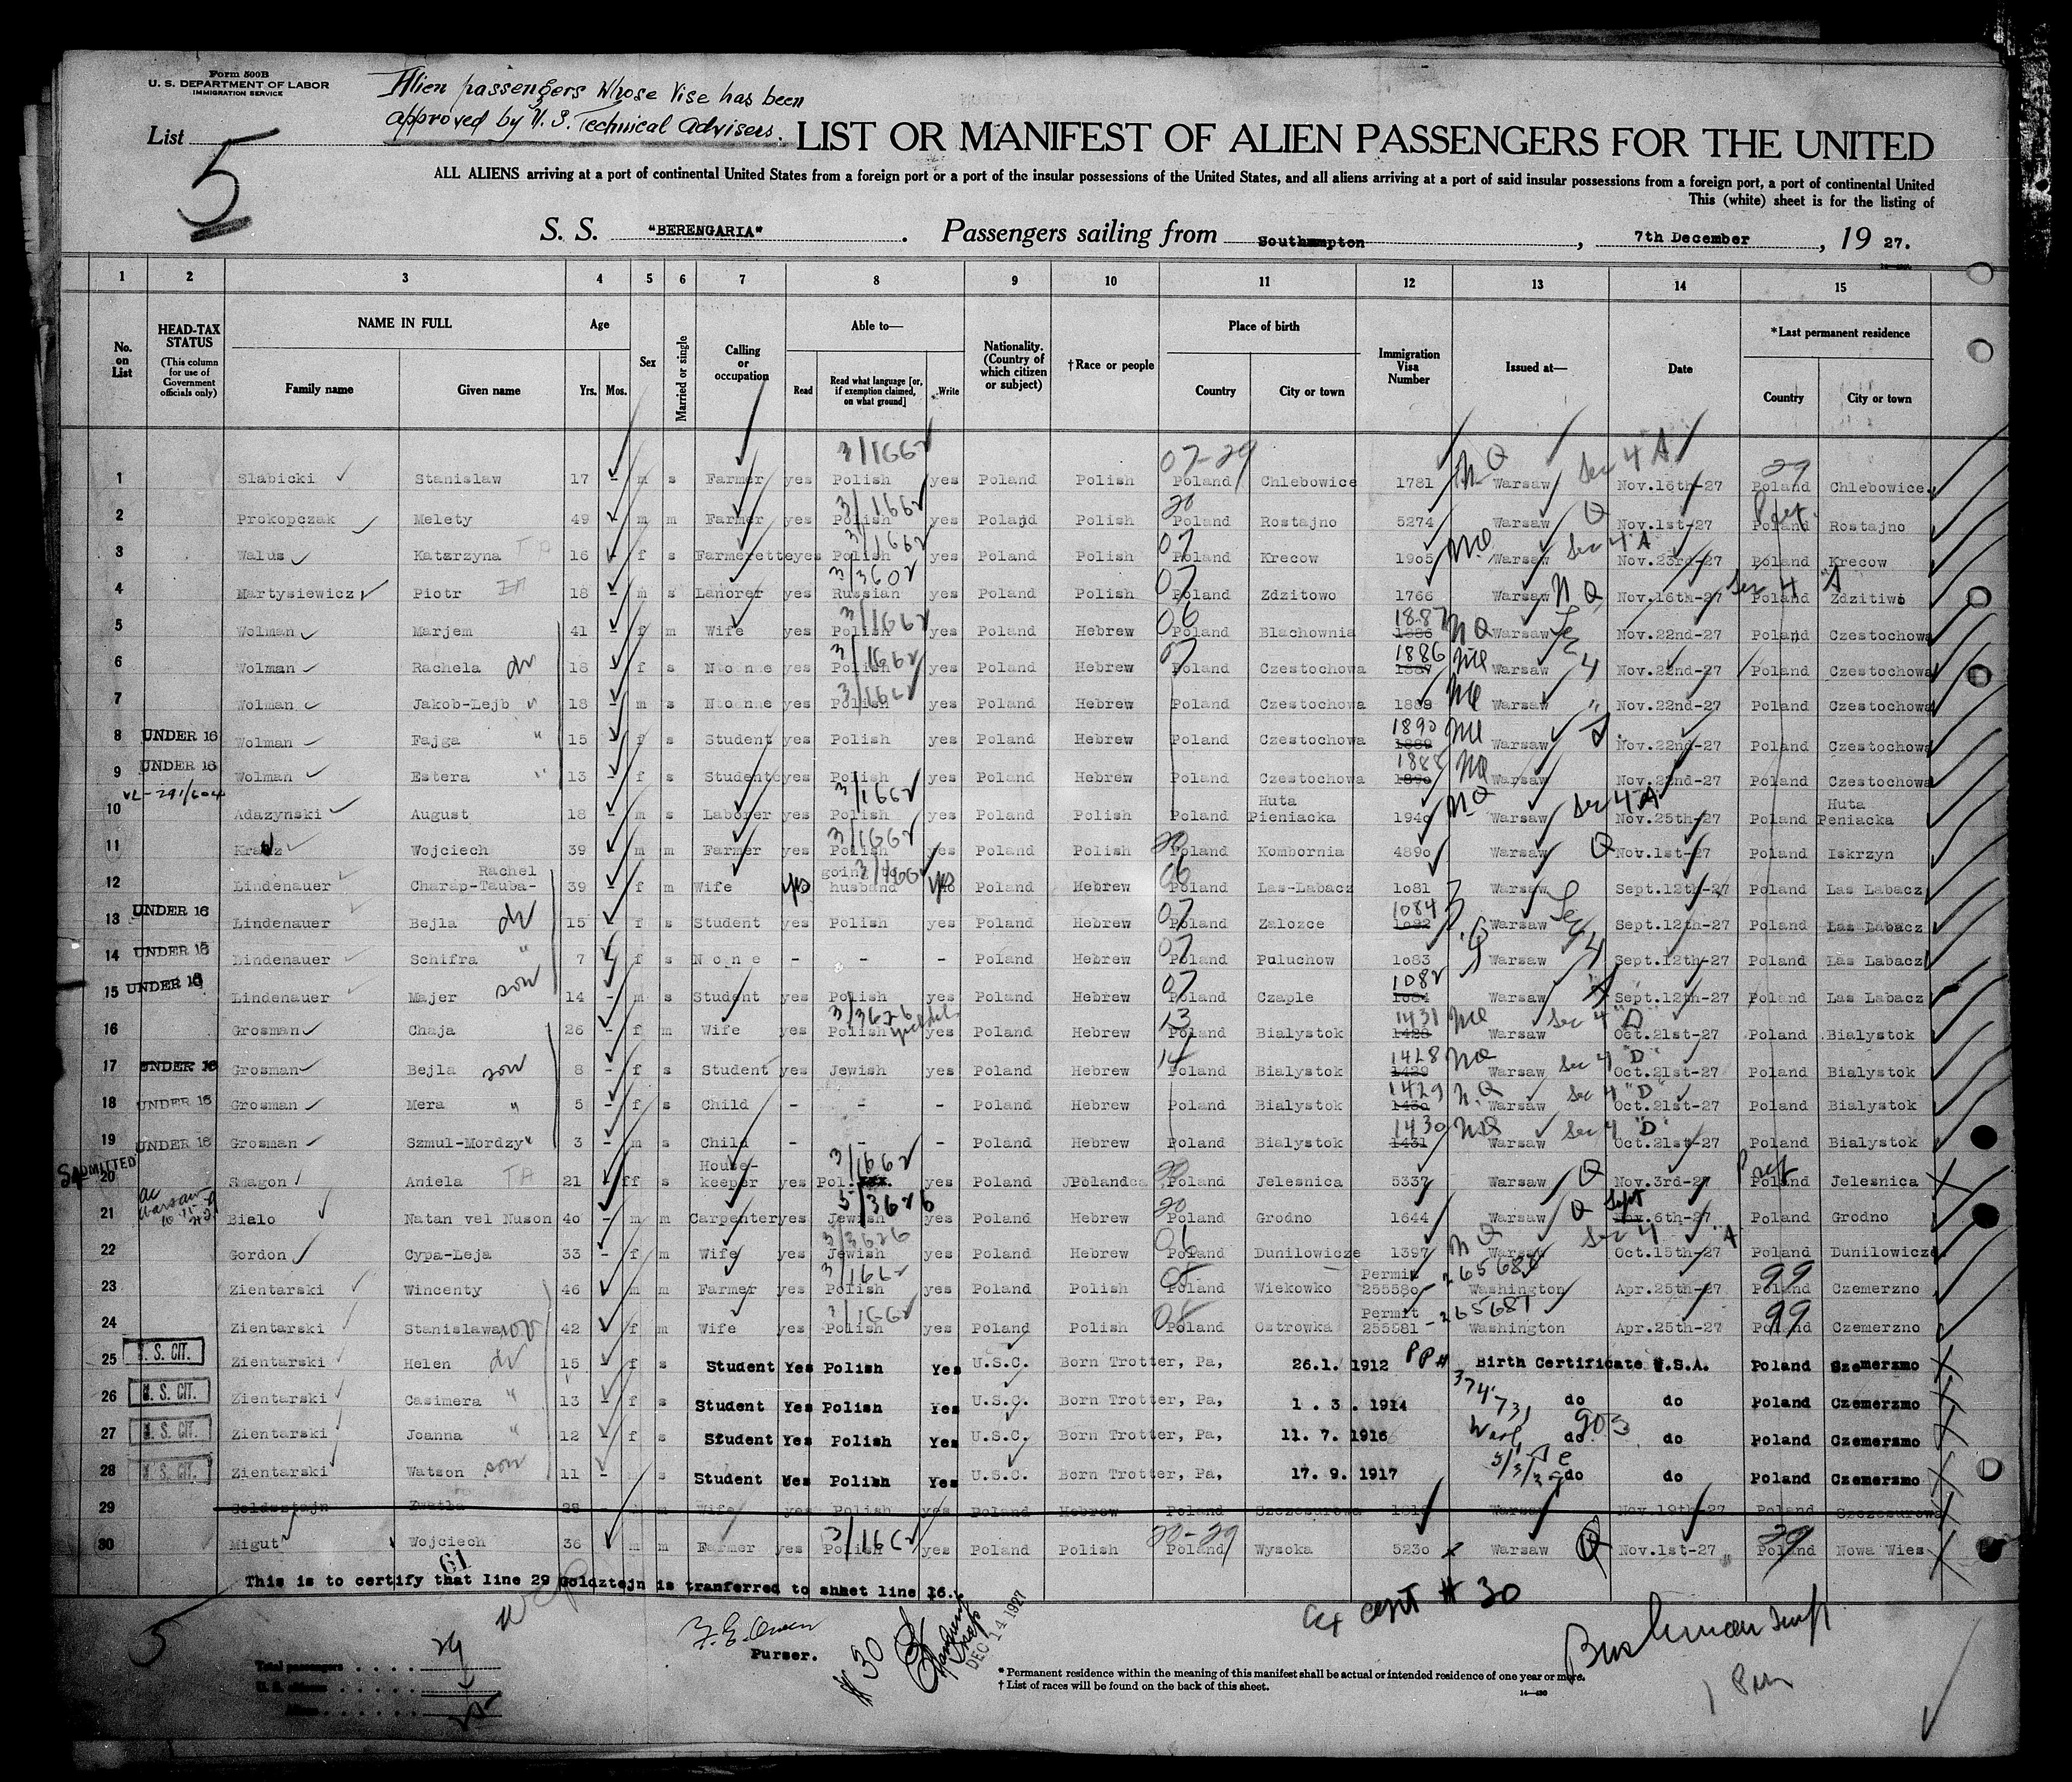 Form 500B
U. S. DEPARTMENT OF LABOR
IMMIGRATION SERVICE
Alien passengers Whose Vise has been
approved by U. S. Technical Advisers.
List 5
LIST OR MANIFEST OF ALIEN PASSENGERS FOR THE UNITED
ALL ALIENS arriving at a port of continental United States from a foreign port or a port of the insular possessions of the United States, and all aliens arriving at a port of said insular possessions from a foreign port, a port of continental United
This (white) sheet is for the listing of
S. S. "BERENGARIA". Passengers sailing from Southampton, 7th December, 19 27.
1 2 3 4 5 6 7 8 9 10 11 12 13 14 15
No. on List
HEAD-TAX STATUS (This column for use of Government officials only)
NAME IN FULL Family name Given name
Age Yrs. Mos.
Sex
Married or single
Calling or occupation
Able to— Read Read what language [or, if exemption claimed, on what ground] Write
Nationality. (Country of which citizen or subject)
†Race or people
Place of birth Country City or town
Immigration Visa Number
Issued at—
Date
*Last permanent residence Country City or town
1 Slabicki Stanislaw 17 - m s Farmer yes Polish 3/1662 yes Poland Polish 07-29 Poland Chlebowice 1781 NQ Warsaw Sec 4 A Nov.16th-27 29 Poland Chlebowice
2 Prokopczak Melety 49 - m m Farmer yes Polish 3/1662 yes Poland Polish 20 Poland Rostajno 5274 Warsaw Q Nov.1st-27 Pref. Poland Rostajno
3 Walus Katarzyna 16 - f s Farmerette yes Polish 3/1662 yes Poland Polish 07 Poland Krecow 1905 NQ Warsaw Sec 4 A Nov.23rd-27 Poland Krecow
4 Martysiewicz Piotr 18 - m s Laborer yes Russian 3/3602 yes Poland Polish 07 Poland Zdzitowo 1766 Warsaw NQ Nov.16th-27 Sec 4 "A Poland Zdzitiwo
5 Wolman Marjem 41 - f m Wife yes Polish 3/1662 yes Poland Hebrew 06 Poland Blachownia 1887 1886 NQ Warsaw Sec Nov.22nd-27 Poland Czestochowa
6 Wolman Rachela dr 18 f s None yes Polish 3/1662 yes Poland Hebrew 07 Poland Czestochowa 1886 1887 NQ Warsaw 4 Nov.22nd-27 Poland Czestochowa
7 Wolman Jakob-Lejb 18 - m s None yes Polish 3/1662 yes Poland Hebrew Poland Czestochowa 1889 NQ Warsaw " Nov.22nd-27 Poland Czestochowa
8 UNDER 16 Wolman Fajga " 15 f s Student yes Polish yes Poland Hebrew Poland Czestochowa 1890 1889 NQ Warsaw Nov.22nd-27 Poland Czestochowa
9 UNDER 16 Wolman Estera " 13 - f s Student yes Polish yes Poland Hebrew Poland Czestochowa 1888 1890 NQ Warsaw Nov.22nd-27 Poland Czestochowa
10 Adazynski August 18 - m s Laborer yes Polish 3/1662 yes Poland Polish Poland Huta Pieniacka 1940 NQ Warsaw Sec 4 A Nov.25th-27 Poland Huta Peniacka
11 Wojciech 39 m m Farmer yes Polish 3/1662 yes Poland Polish 20 Poland Kombornia 4890 Warsaw Q Nov.1st-27 Poland Iskrzyn
12 Lindenauer Rachel Charap-Tauba- 39 - f m Wife yes going to husband yes Poland Hebrew 06 Poland Las-Labacz 1081 Warsaw Sept.12th-27 Poland Las Labacz
13 UNDER 16 Lindenauer Bejla dr 15 f s Student yes Polish yes Poland Hebrew 07 Poland Zalozce 1084 1082 Warsaw Sec Sept.12th-27 Poland Las Labacz
14 UNDER 16 Lindenauer Schifra " 7 f s None - - - Poland Hebrew 07 Poland Puluchow 1083 Warsaw 4 Sept.12th-27 Poland Las Labacz
15 UNDER 16 Lindenauer Majer son 14 - m s Student yes Polish yes Poland Hebrew 07 Poland Czaple 1082 1084 Warsaw "A Sept.12th-27 Poland Las Labacz
16 Grosman Chaja 26 - f m Wife yes Polish 3/3626 yes Poland Hebrew 13 Poland Bialystok 1431 1428 NQ Warsaw Sec 4 "D" Oct.21st-27 Poland Bialystok
17 UNDER 16 Grosman Bejla son 8 - f s Student yes Jewish yes Poland Hebrew 14 Poland Bialystok 1428 1429 NQ Warsaw Sec 4 "D" Oct.21st-27 Poland Bialystok
18 UNDER 16 Grosman Mera " 5 - f s Child - - - Poland Hebrew Poland Bialystok 1429 1430 N.Q Warsaw Sec 4 "D" Oct.21st-27 Poland Bialystok
19 UNDER 16 Grosman Szmul-Mordzy " 3 - m s Child - - - Poland Hebrew Poland Bialystok 1430 1431 NQ Warsaw Sec 4 "D" Oct.21st-27 Poland Bialystok
20 ADMITTED Smagon Aniela 21 f s House-keeper yes Pol. 3/1662 yes Poland 20 Poland Jelesnica 5337 Warsaw Q Nov.3rd-27 Pref Poland Jelesnica
21 Bialo Natan vel Nuson 40 - m m Carpenter yes Jewish 3/3626 yes Poland Hebrew 20 Poland Grodno 1644 Warsaw Q Sept Nov.6th-27 Poland Grodno
22 Gordon Cypa-Leja 33 - f m Wife yes Jewish 3/3626 yes Poland Hebrew 06 Poland Dunilowicze 1397 NQ Warsaw Sec 4 "A Oct.15th-27 Poland Dunilowicze
23 Zientarski Wincenty 46 m m Farmer yes Polish 3/1662 yes Poland Polish 05 Poland Wiekowko Permit 255580 - 265680 Washington Apr.25th-27 99 Poland Czemerzno
24 Zientarski Stanislawa 42 f m Wife yes Polish 3/1662 yes Poland Polish 08 Poland Ostrowka Permit 255581 - 265681 Washington Apr.25th-27 99 Poland Czemerzno
25 U. S. CIT. Zientarski Helen dr 15 - f s Student Yes Polish Yes U.S.C. Born Trotter, Pa, 26.1. 1912 Birth Certificate U.S.A. Poland Szemerzmo
26 U. S. CIT. Zientarski Casimera " 13 - f s Student Yes Polish Yes U.S.C. Born Trotter, Pa, 1 . 3 . 1914 do do Poland Czemerzmo
27 U. S. CIT. Zientarski Joanna " 12 f s Student Yes Polish Yes U.S.C. Born Trotter, Pa, 11. 7. 1916 do do Poland Czemerzmo
28 U. S. CIT. Zientarski Watson son 11 - s Student Yes Polish Yes U.S.C. Born Trotter, Pa, 17. 9. 1917 do do Poland Czemerzmo
29 Goldsztejn 28 m Wife yes Polish yes Poland Hebrew Poland Szczesurowa Warsaw Nov.19th-27 Poland Szczesurowa
30 Migut Wojciech 36 m m Farmer yes Polish 3/1662 yes Poland Polish 20-29 Poland Wysoka 5230 Warsaw Q Nov.1st-27 29 Poland Nowa Wies
61
This is to certify that line 29 Goldztejn is tranferred to shhet line 16.
5
Purser.
# 30
DEC 14 1927
# 30
Total passengers . . . . 29
U. S. citizens . . . . .
Aliens . . . . . . 25
* Permanent residence within the meaning of this manifest shall be actual or intended residence of one year or more.
† List of races will be found on the back of this sheet.